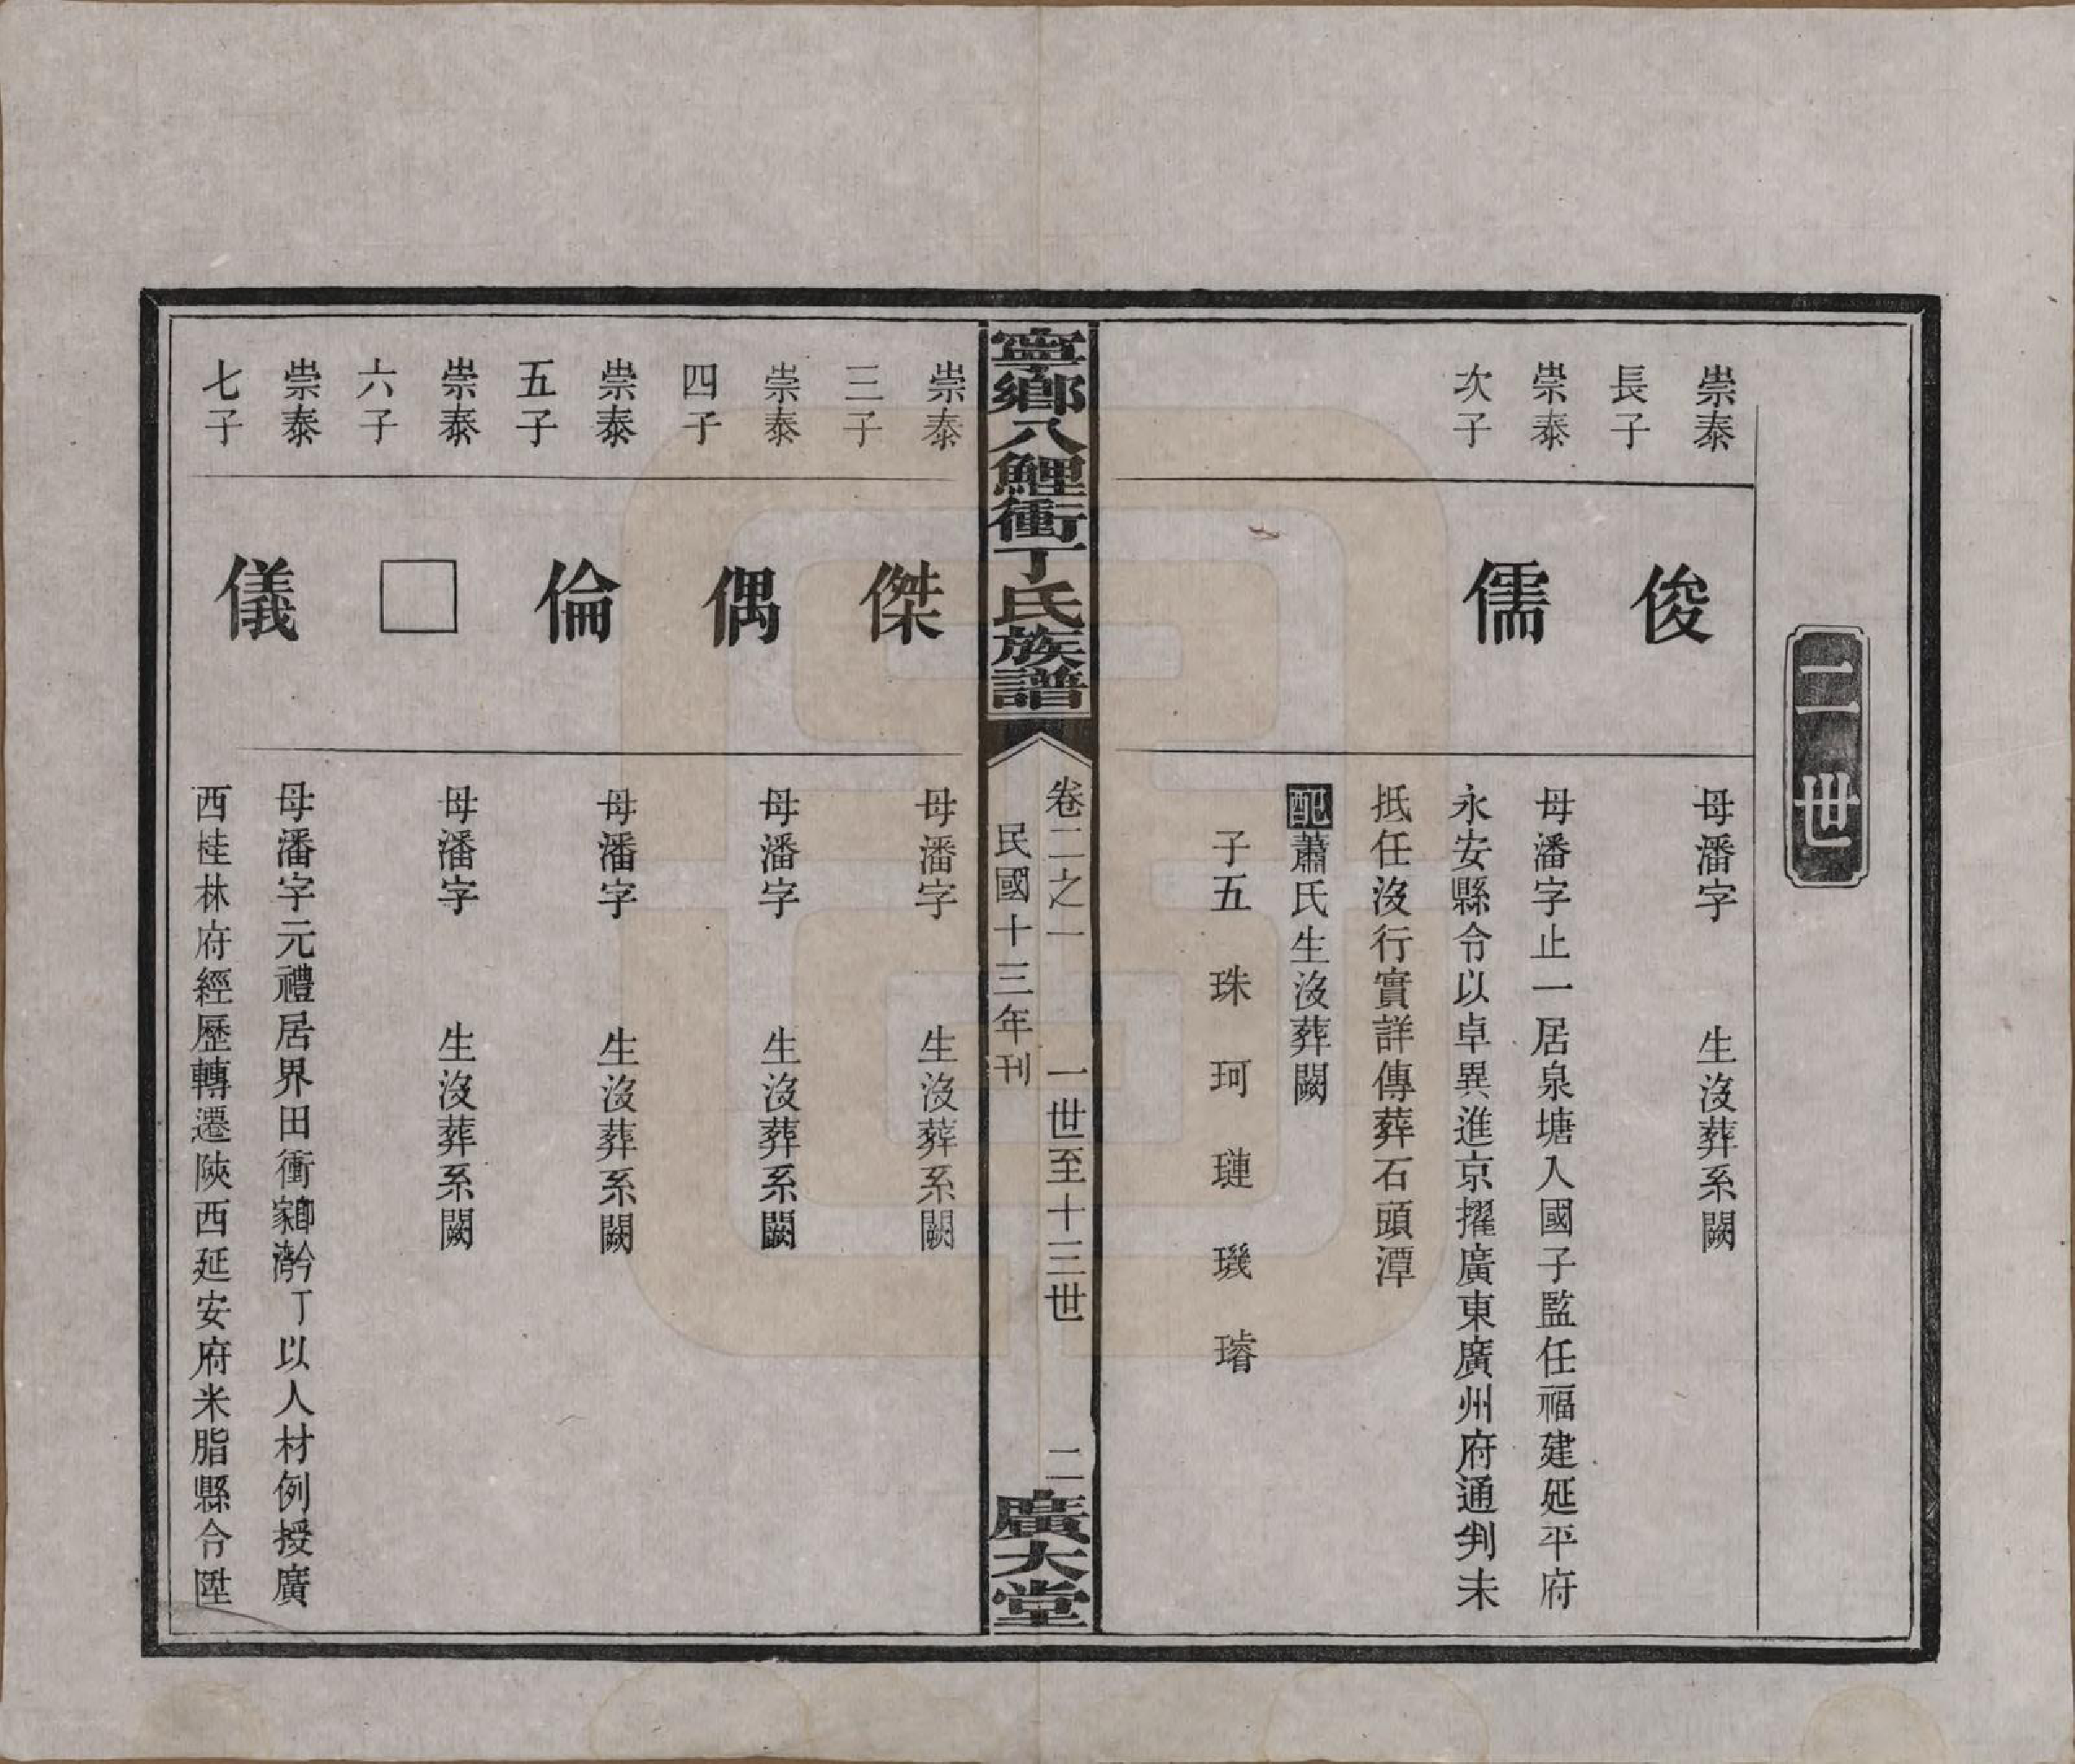 二世
崇泰
長子
俊
母潘字　生沒葬系闕
崇泰
次子
儒
母潘字止一居泉塘入國子監任福建延平府
永安縣令以卓異進京擢廣東廣州府通判未
抵任沒行實詳傳葬石頭潭
配蕭氏生沒葬闕
子五　珠　珂　璉　璣　璿
寧鄉八鯉衝丁氏族譜
卷二之一　一世至十三世　二
民國十三年刊
廣大堂
崇泰
三子
傑
母潘字　生沒葬系闕
崇泰
四子
偶
母潘字　生沒葬系闕
崇泰
五子
倫
母潘字　生沒葬系闕
崇泰
六子
□
母潘字　生沒葬系闕
崇泰
七子
儀
母潘字元禮居界田衝即今家灣丁以人材例授廣
西桂林府經歷轉遷陝西延安府米脂縣令陞